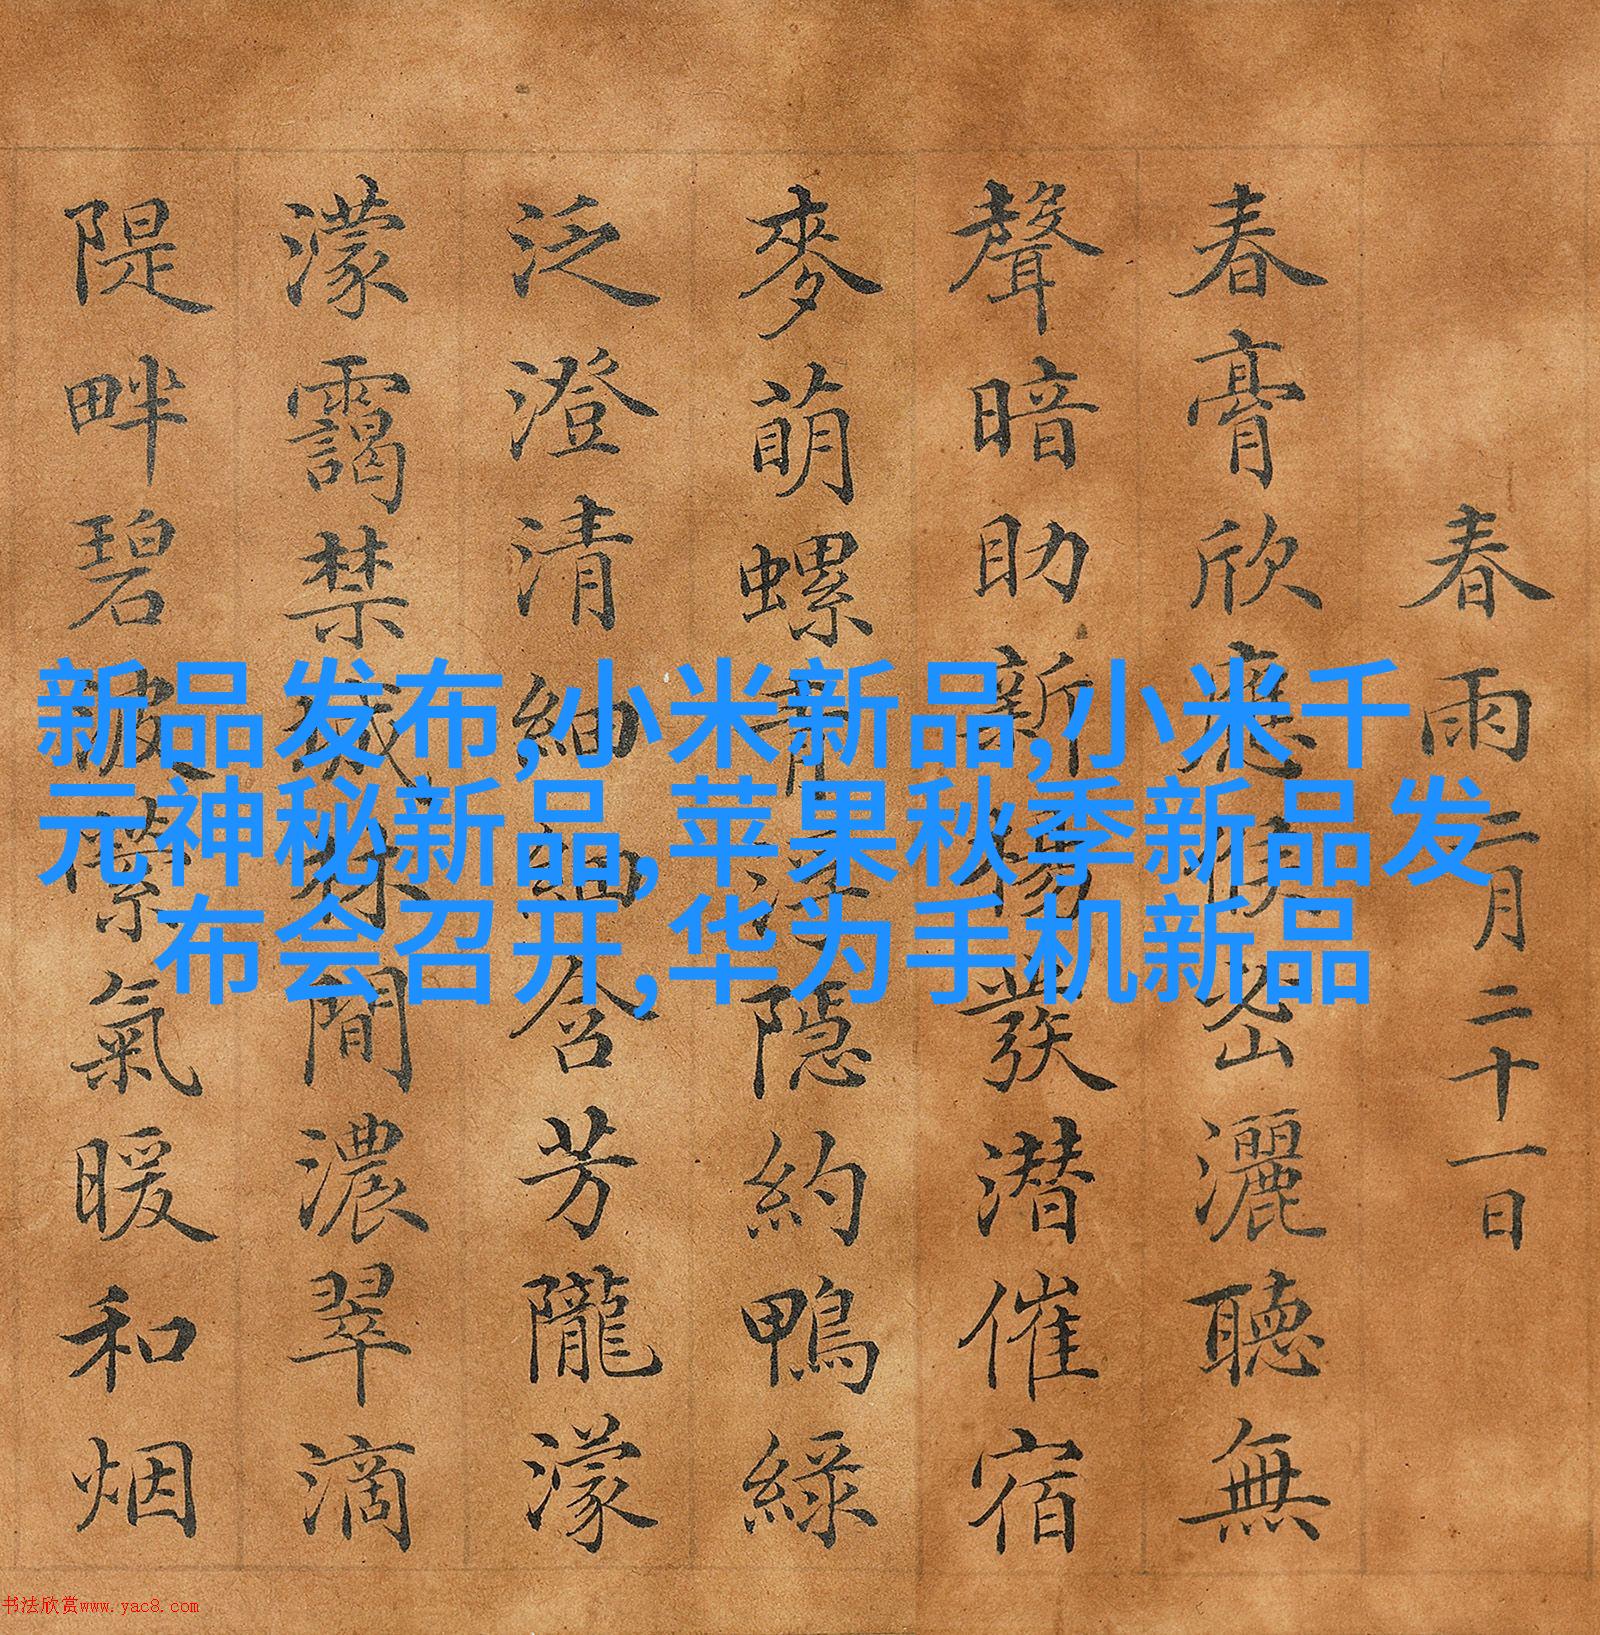 春雨二月二十一日
春膏欣應密灑聽無
聲暗助新陽發潜催宿
麥萌螺青浮隠約鴨綠
泛澄清紬含芳隴濛
濛靄禁城林間濃翠滴
隄畔碧波氣暖和烟
新品发布,小米新品,小米千
元神秘新品,苹果秋季新品发
布会召开,华为手机新品
书法欣赏www.yac8.com